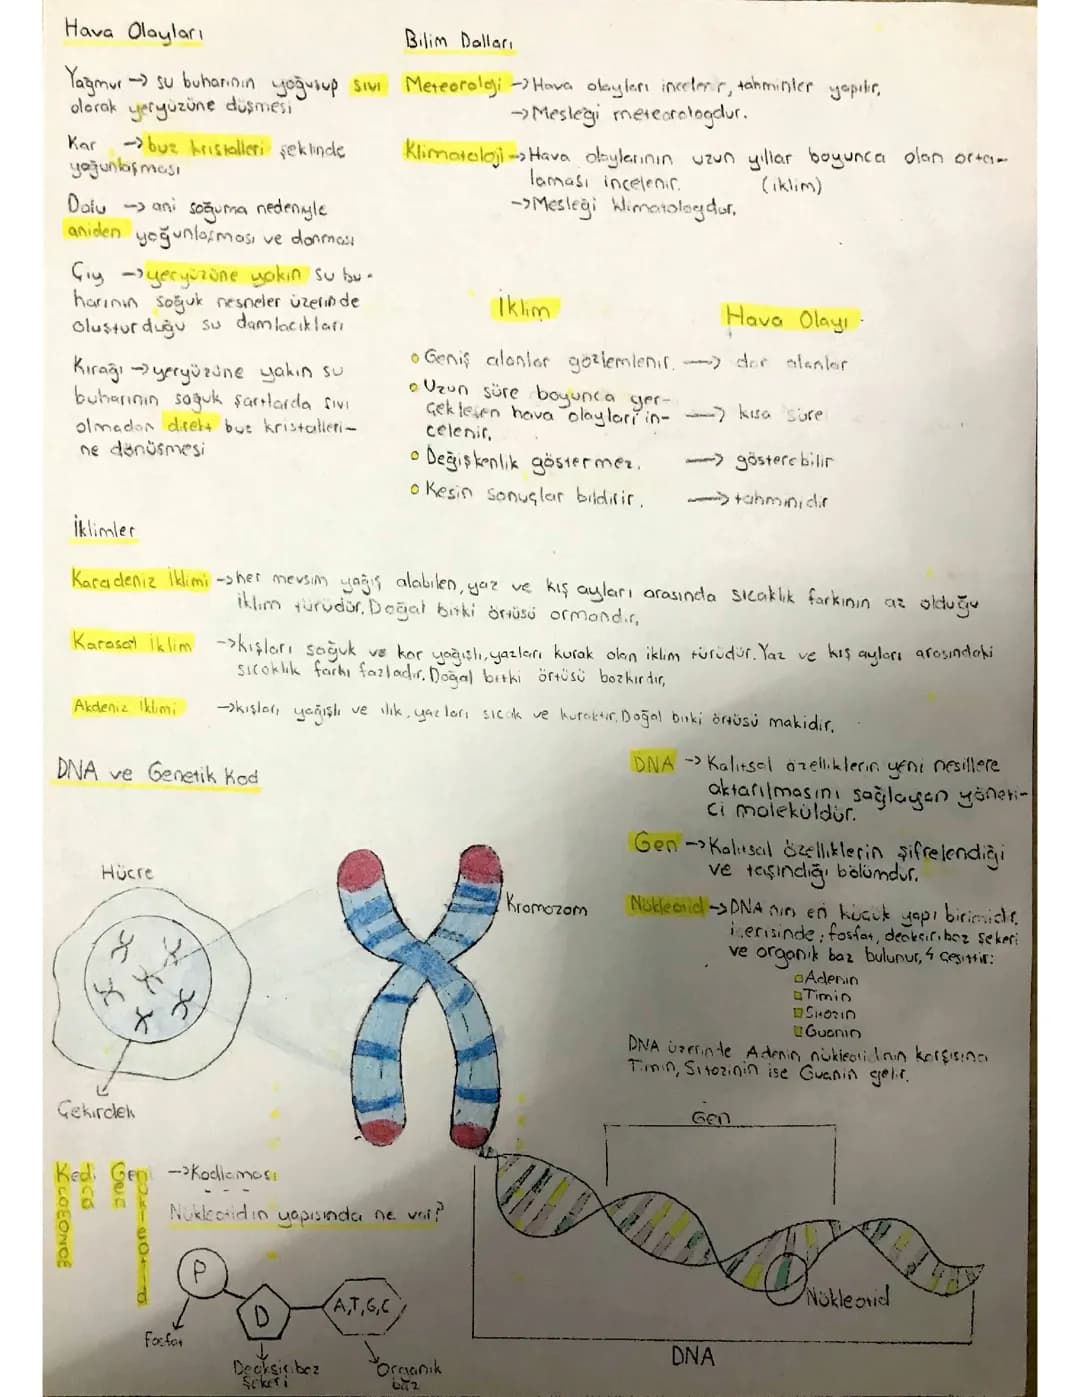 Hava Olayları
Yağmur → su buharının yoğuşup sıvı
olarak yeryüzüne düşmesi
Kar → buz kristalleri şeklinde
yoğunlaşması
Dolu → ani soğuma nedeniyle
aniden yoğunlaşması ve donması
Çiy → yeryüzüne yakın su bu-
harının soğuk nesneler üzerinde
oluşturduğu su damlacıkları
Kırağı → yeryüzüne yakın su
buharının soğuk şartlarda sıvı
olmadan direkt buz kristalleri-
ne dönüşmesi
Bilim Dalları
Meteoroloji → Hava olayları incelenir, tahminler yapılır.
→ Mesleği meteorologdur.
Klimatoloji → Hava olaylarının uzun yıllar boyunca olan orta-
laması incelenir. (iklim)
→ Mesleği klimatologdur.
İklim
Hava Olayı
Geniş alanlar gözlemlenir. → dar alanlar
Uzun süre boyunca ger-
çekleşen hava olayları in- → kısa süre
celenir.
Değişkenlik göstermez. → gösterebilir
Kesin sonuçlar bildirir. → tahminidir
İklimler
Karadeniz İklimi → her mevsim yağış alabilen, yaz ve kış ayları arasında sıcaklık farkının az olduğu
iklim türüdür. Doğal bitki örtüsü ormandır.
Karasal iklim → kışları soğuk ve kar yağışlı, yazları kurak olan iklim türüdür. Yaz ve kış ayları arasındaki
sıcaklık farkı fazladır. Doğal bitki örtüsü bozkırdır.
Akdeniz İklimi → kışları yağışlı ve ılık, yazları sıcak ve kuraktır. Doğal bitki örtüsü makidir.
DNA ve Genetik Kod
DNA → Kalıtsal özelliklerin yeni nesillere
aktarılmasını sağlayan yöneti-
ci moleküldür.
Gen → Kalıtsal özelliklerin şifrelendiği
ve taşındığı bölümdür.
Nükleotid → DNA'nın en küçük yapı birimidir.
İçerisinde; fosfat, deoksiriboz şekeri
ve organik baz bulunur, 4 çeşittir:
Adenin
Timin
Sitozin
Guanin
DNA üzerinde Adenin nükleotidinin karşısına
Timin, Sitozinin ise Guanin gelir.
Hücre
Kromozom
Çekirdek
Gen
Kedi Geni → Kodlaması
Nükleotidin yapısında ne var?
P
D
A,T,G,C
Fosfat
Deoksiriboz
şekeri
Organik
baz
Nükleotid
DNA